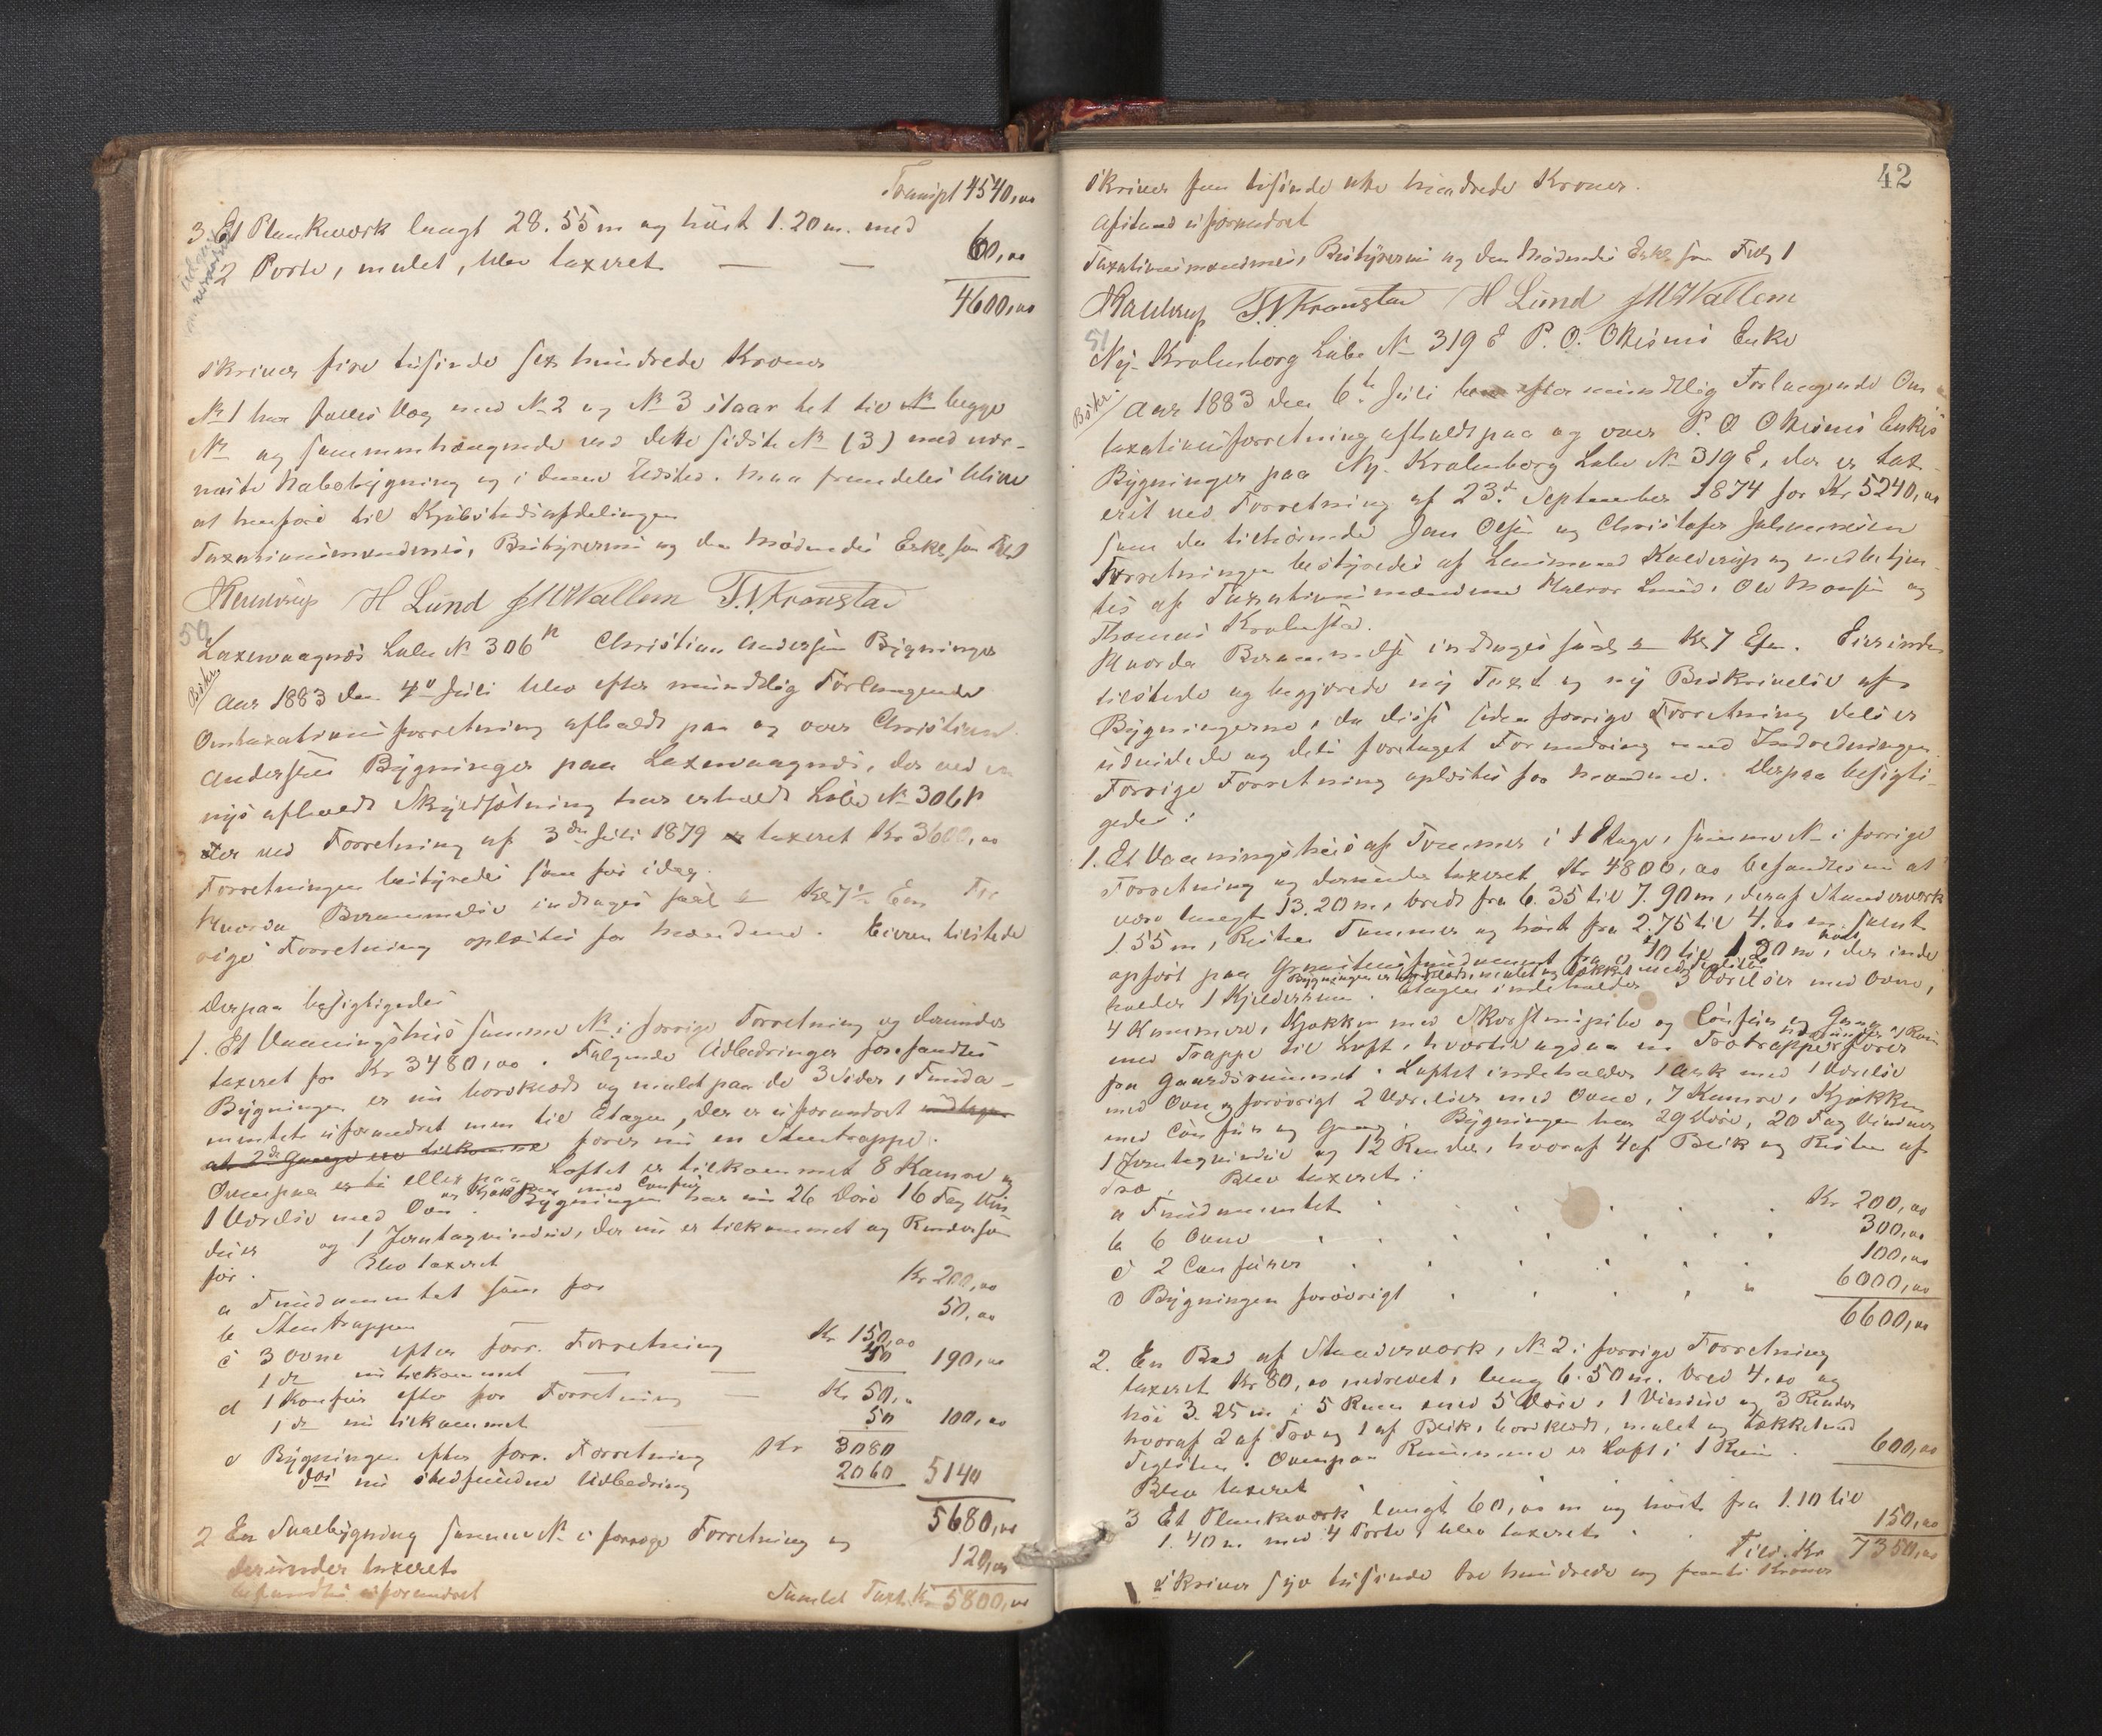 Transpt 4540,00
3 Et Plankeværk langt 28.55 m og høit 1.20 m. med
2 Porte, malet, blev taxeret — — 60,00
4600,00
skriver fire tusinde sex hundrede Kroner
No 1 har fælles Væg med No 2 og No 3 staar tet til begge
No og sammenhængende med dette sidste No (3) med nær-
meste Nabobygning og i denne Udsted. maa fremdeles blive
at henføre til Kjøbstadsafdelingen
Taxationsmændenes, Bestyrerens og den Mødendes Erkl. som Fol
H Lund JMWallem T.N. Kronstad
50
Laxevaagnæs Løbe No 306 n Christian Andersens Bygninger
Aar 1883 den 4de Juli blev efter mundtlig Forlangende
Omtaxationsforretning afholdt paa og over Christian
Andersens Bygninger paa Laxevaagnæs, der ved en
nys afholdt Skyldsætning har erholdt Løbe No 306 n
der ved Forretning af 3die Juli 1879 er taxeret Kr 3600,00
Forretningen bestyredes som før idag.
Hvorda Berammelse indtages saal. Kl 7½ Em For
rige Forretning oplæstes for Mændene. Eieren tilstede
Derpaa besigtigedes
1. Et Vaaningshus samme No i forrige Forretning og derunder
taxeret for Kr 3480,00. Følgende Udbedringer forefandtes
Bygningen er nu bordklædt og malet paa de 3 Sider, Funda-
mentet uforandret men til Etagen, der er uforandret
fører nu en Stentrappe.
Ovenpaa eller paa Loftet er tilkommet 8 Kamre og
1 Værelse med Ovn og Kjøkken med Comfur. Bygningen har nu 26 Døre 16 Fag Vin-
duer og 1 Jerntagvindue, der nu er tilkommet og Render som
før. Blev taxeret
a Fundamentet som før Kr 200,00
b Stentrappen 50,00
c 3 Ovne efter forr. Forretning Kr 150,00
1 do nu tilkommet — — 40 190,00
d 1 Komfur efter for Forretning — Kr 50,00
1 do nu tilkommet — 50 100,00
e Bygningen efter forr. Forretning Kr 3080
do nu stedfundne Udbedring 2060 5140
5680,00
2 En Skuebygning samme No i forrige Forretning og
derunder taxeret 120,00
befandtes uforandret Samlet Taxt Kr 5800,00
42
skriver fem tusinde otte hundrede Kroner.
Afstand uforandret
Taxationsmændenes, Bestyrerens og den Mødendes Erkl. som Fol 1
T.N. Kronstad H Lund JMWallem
51
Ny-Krohnborg Løbe No 319 E P. O. Olsens Enke
Aar 1883 den 6te Juli blev efter mundtlig Forlangende Om
taxationsforretning afholdt paa og over P. O Olsens Enkes
Bygninger paa Ny-Krohnborg Løbe No 319 E, der er tax-
eret ved Forretning af 23de September 1874 for Kr 5240,00
som da tilhørende Jan Olsen og Christofer Johannesen
Forretningen bestyredes af Lensmand Kalderup og medbetjen-
tes af Taxationsmændene Halvor Lund, Ole Monsen og
Thomas Krohnstad.
Hvorda Berammelse indtages saal. Kl 7 Efm. Eierinden
tilstede og begjærede ny Taxt og ny Beskrivelse af
Bygningerne, da disse siden forrige Forretning dels er
udvidede og dels foretaget Forandring med Indredningen.
Forrige Forretning oplæstes for Mændene. Derpaa besigti-
gedes:
1. Et Vaaningshus af Tømmer i 1 Etage, samme No i forrige
Forretning og derunder taxeret Kr 4800,00 befandtes nu at
være langt 13.20 m, bredt fra 6.35 til 7.90 m, deraf Stænderværk
1.55 m, Resten Tømmer og høit fra 2.75 til 4.00 m. samt
opført paa Graastensfundament fra 0.40 til 1.20 m høit, der inde
Bygningen er bordklædt, malet og tækket med Teglsten
holder 1 Kjelderrum. Etagen indeholder 3 Værelser med Ovne,
4 Kammere, Kjøkken med Skorstenspibe og Comfur og Gang
med Trappe til Loft, hvortil ogsaa en Trætrappe fører
fra Gaardsrummet. Loftet indeholder 1 Ark med 1 Værelse
med Ovn og forøvrigt 2 Værelser med Ovne, 7 Kamre, Kjøkken
med Comfur og Gang. Bygningen har 29 Døre, 20 Fag Vinduer
1 Jerntagvindue og 12 Render, hvoraf 4 af Blik og Resten af
Træ. Blev taxeret:
a Fundamentet Kr 200,00
b 6 Ovne 300,00
c 2 Comfurer 100,00
d Bygningen forøvrigt " 6000,00
6600,00
2. En Bod af Stænderværk, No 2 i forrige Forretning
taxeret Kr 80,00 nedrevet, lang 6.50 m. bred 4.00 og
høi 3.25 m i 5 Rum med 5 Døre, 1 Vindue og 3 Render
hvoraf 2 af Træ og 1 af Blik, bordklædt, malet og tækket med
Teglsten. Ovenpaa Rummene er Loft i 1 Rum.
Blev taxeret 600,00
3 Et Plankeværk langt 60,00 m og høit fra 1.10 til
1.40 m. med 4 Porte, blev taxeret 150,00
Tils. Kr 7350,00
skriver syv tusinde tre hundrede og femti Kroner